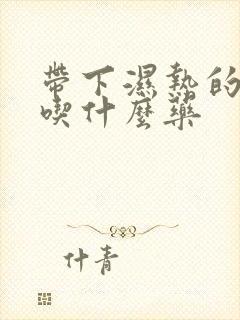 帶下濕熱的
喫什麼藥
什青